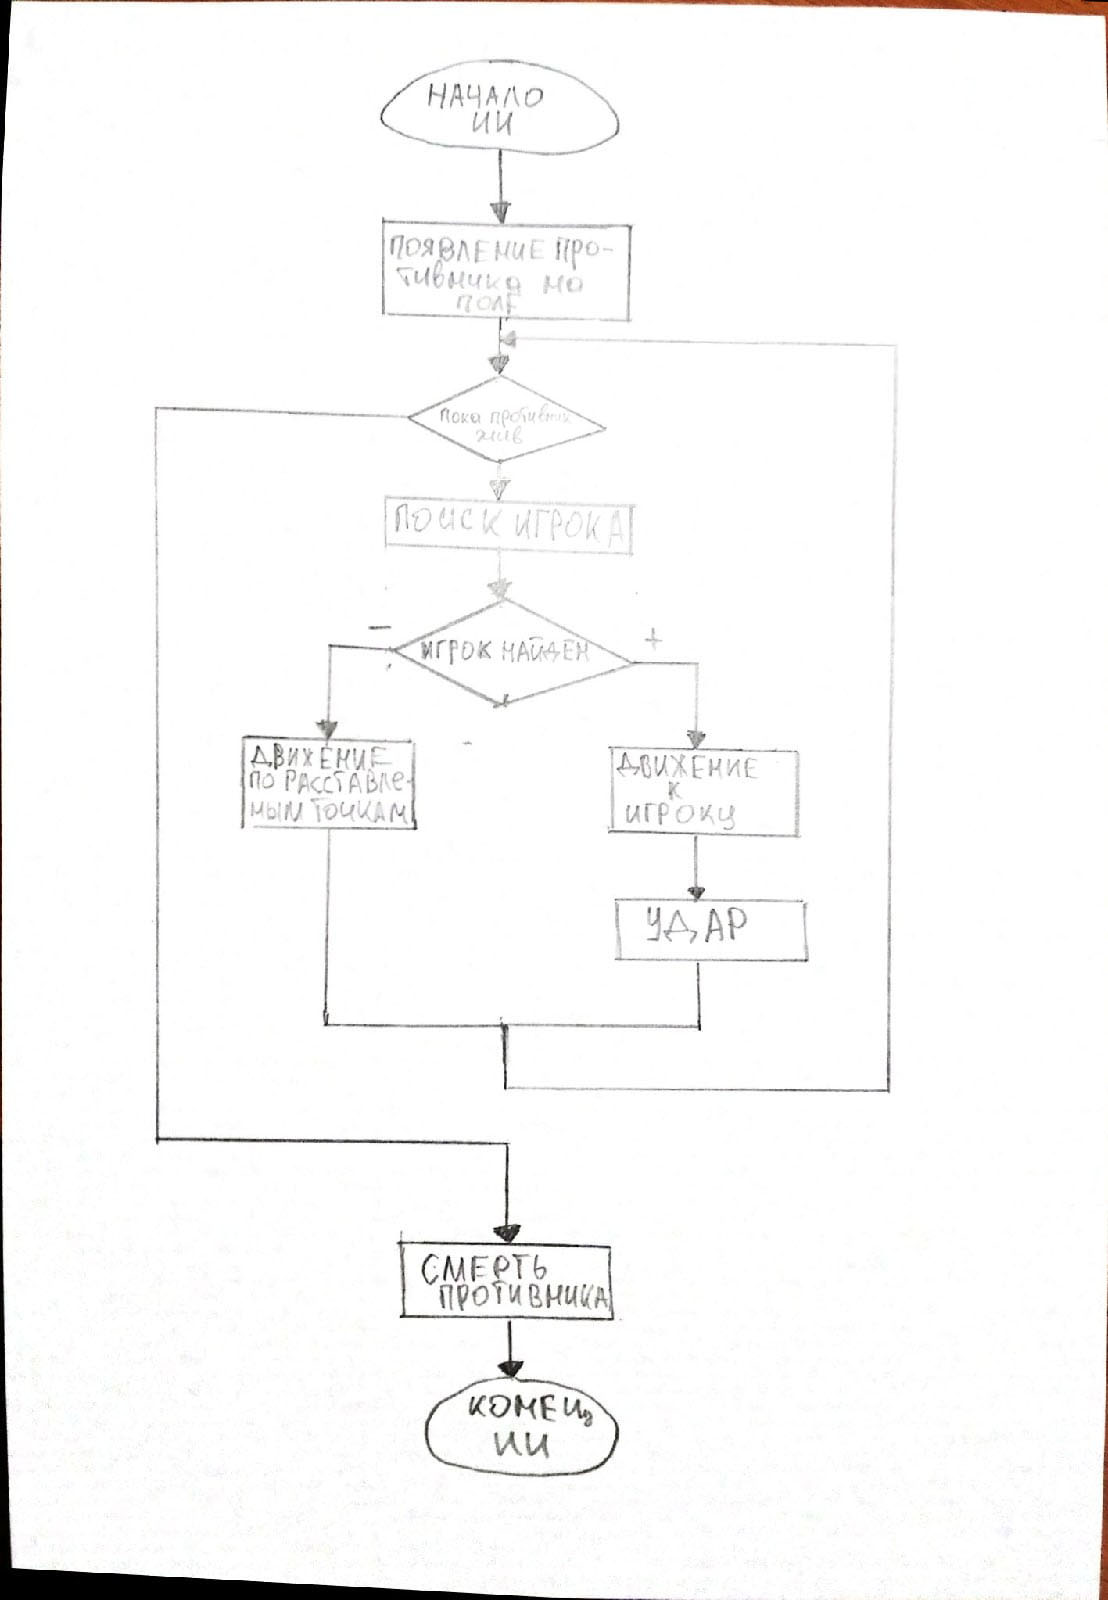 НАЧАЛО
ИИ
ПОЯВЛЕНИЕ ПРО-
ТИВНИКА НА
ПОЛЕ
Пока противник
жив
ПОИСК ИГРОКА
-
+
ИГРОК НАЙДЕН
ДВИЖЕНИЕ
ПО РАССТАВЛЕ-
НЫМ ТОЧКАМ
ДВИЖЕНИЕ
К
ИГРОКУ
УДАР
СМЕРТЬ
ПРОТИВНИКА
КОНЕЦ
ИИ